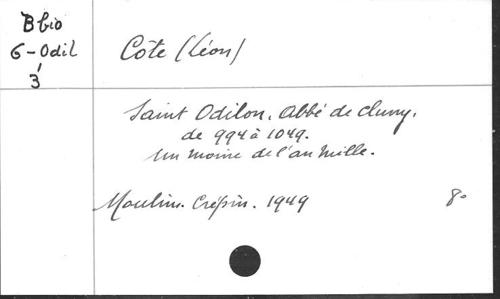 B bio
6-Odil
3
Côte (Léon)
Saint Odilon. Abbé de Cluny.
de 994 à 1049.
Un moine de l'an Mille.
Moulin. Crépin. 1949
8°